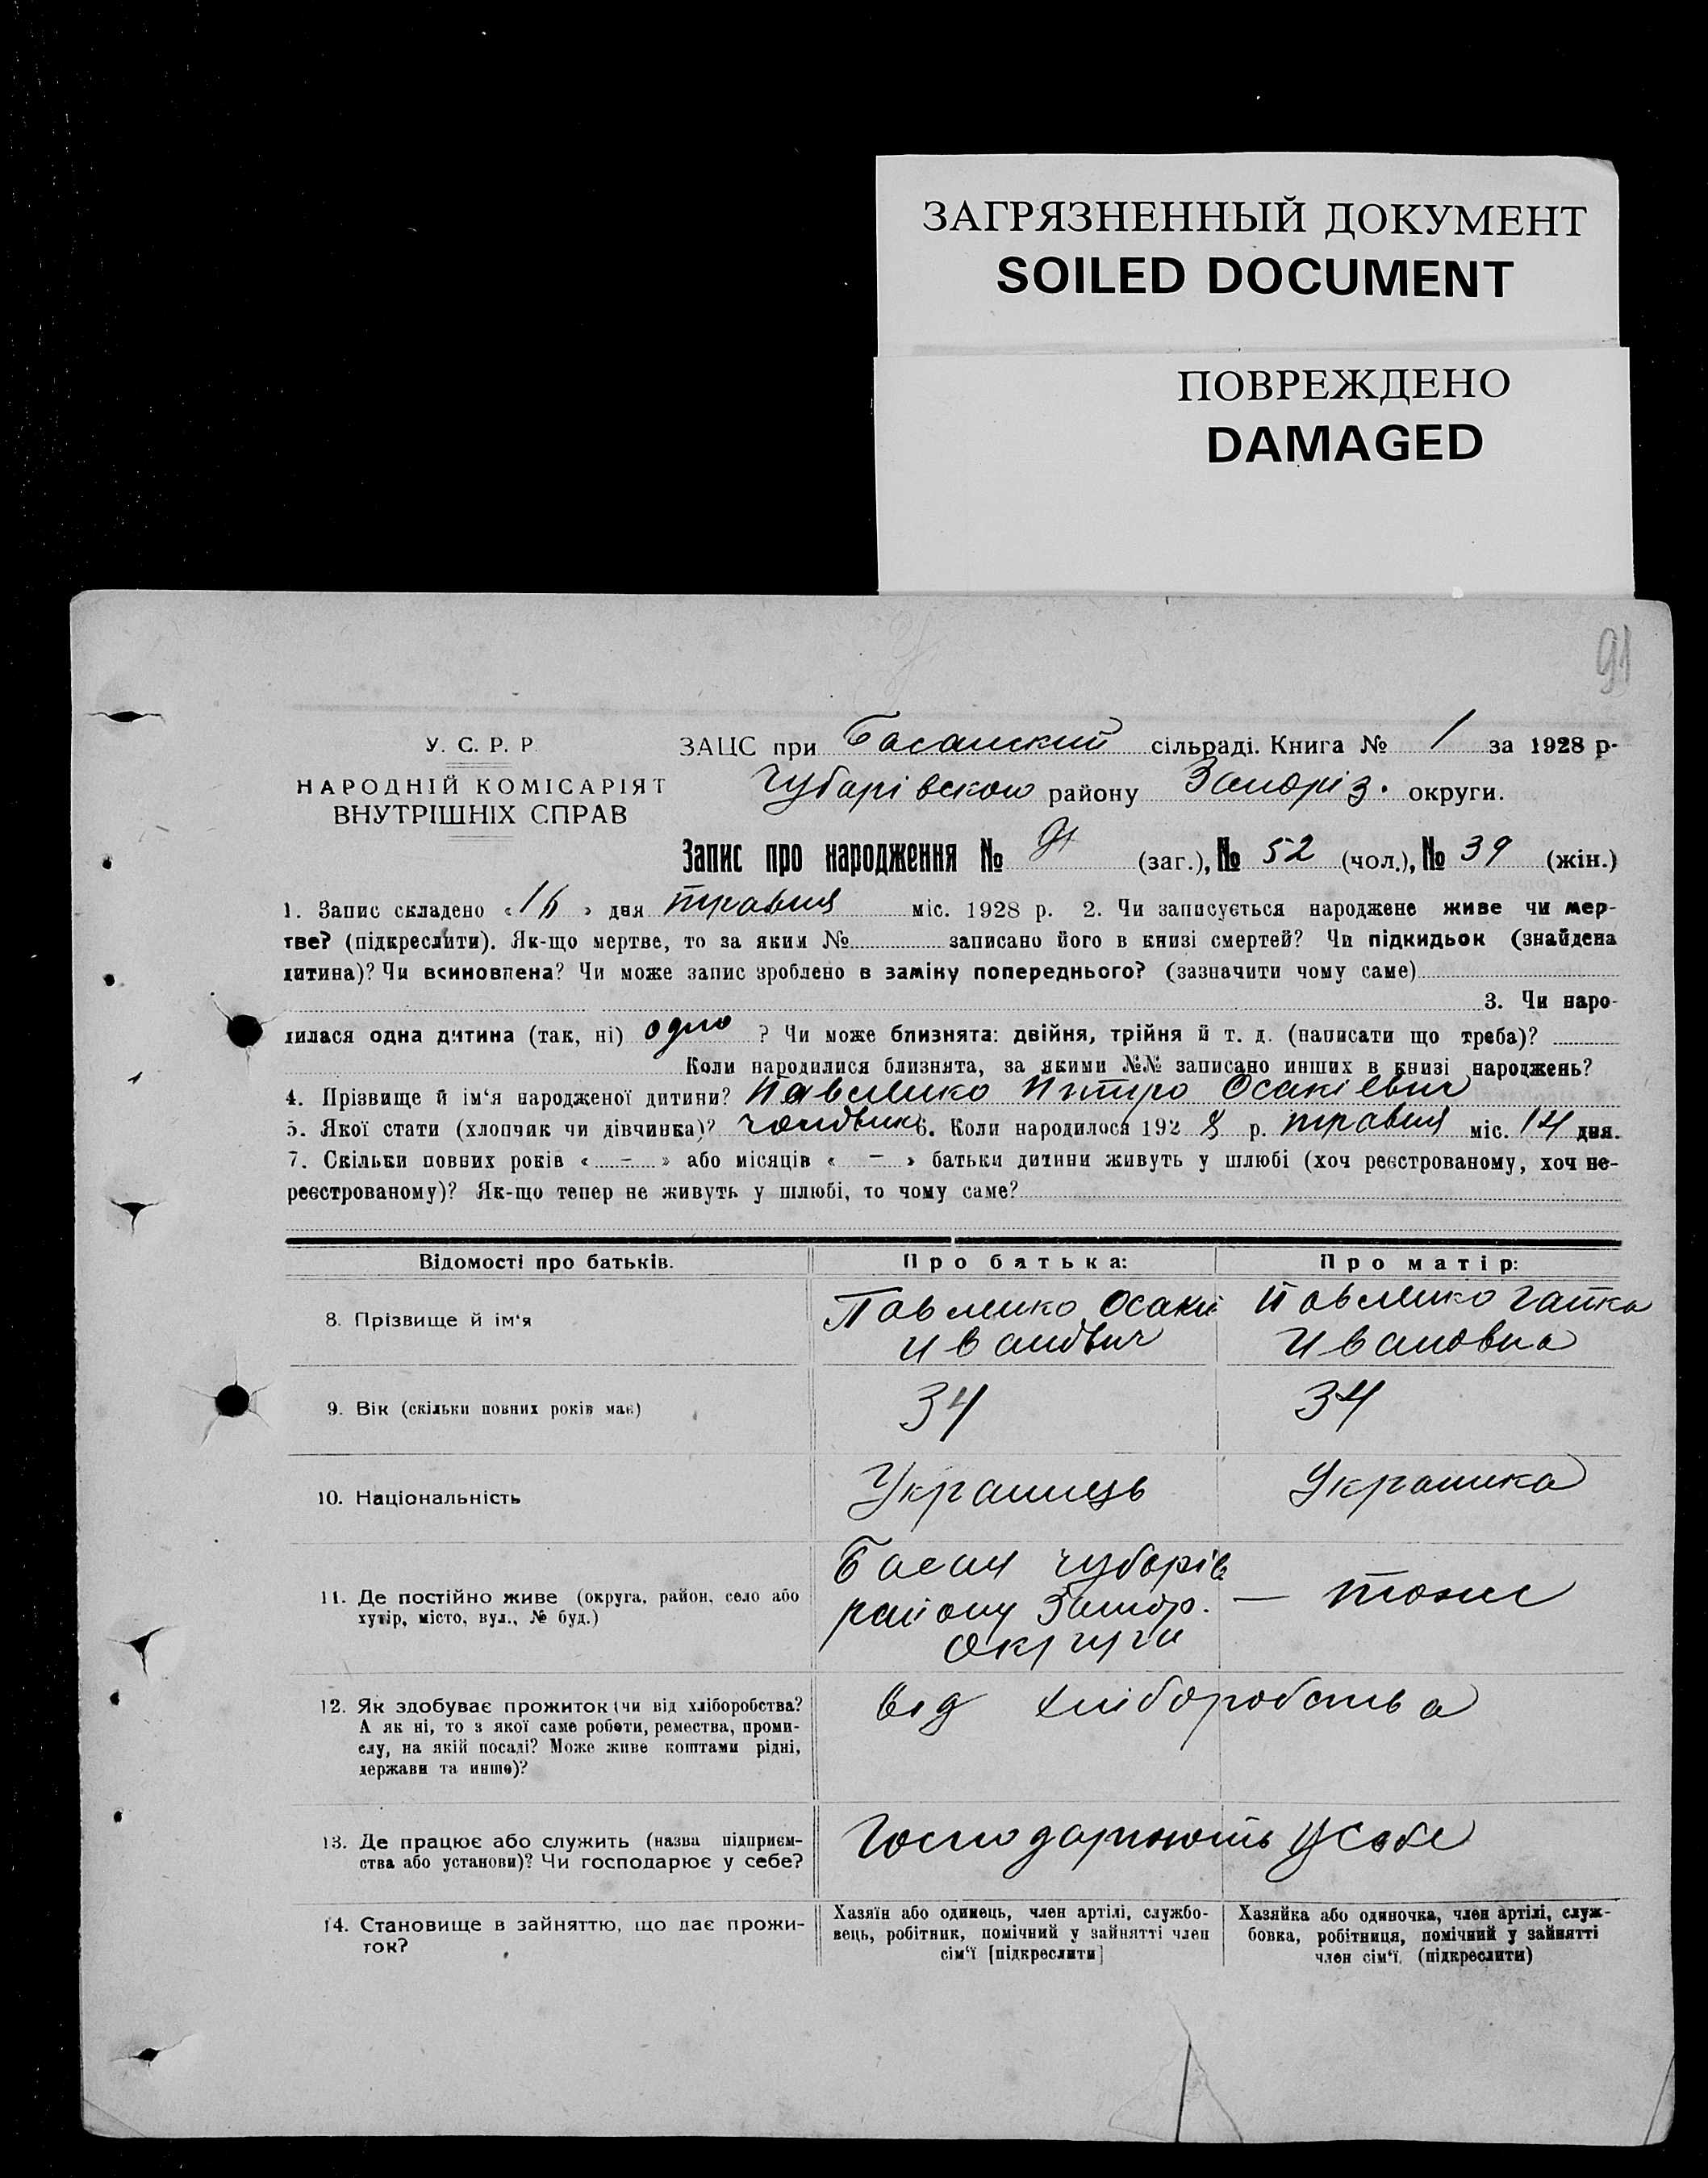 ЗАГРЯЗНЕННЫЙ ДОКУМЕНТ
SOILED DOCUMENT
ПОВРЕЖДЕНО
DAMAGED
91
У. С. Р. Р.
НАРОДНІЙ КОМІСАРІЯТ
ВНУТРІШНІХ СПРАВ
ЗАЦС при Басанский сільраді. Книга № 1 за 1928 р.
Чубарівского району Запоріз. округи.
Запис про народження № 91 (заг.), № 52 (чол.), № 39 (жін.)
1. Запис складено «16» дня травня міс. 1928 р. 2. Чи записується народжене живе чи мер-
тве? (підкреслити). Як-що мертве, то за яким № записано його в книзі смертей? Чи підкидьок (знайдена
дитина)? Чи всиновлена? Чи може запис зроблено в заміну попереднього? (зазначити чому саме)
3. Чи наро-
дилася одна дитина (так, ні) одно ? Чи може близнята: двійня, трійня й т. д. (написати що треба)?
Коли народилися близнята, за якими №№ записано инших в книзі народжень?
4. Прізвище й ім‘я народженої дитини? Павленко Петро Осакіевич
5. Якої стати (хлопчик чи дівчинка)? чоловик 6. Коли народилося 1928 р. травня міс. 14 дня.
7. Скільки повних років « – » або місяців « – » батьки дитини живуть у шлюбі (хоч реєстрованому, хоч не-
реєстрованому)? Як-що тепер не живуть у шлюбі, то чому саме?
Відомості про батьків. Про батька: Про матір:
8. Прізвище й ім‘я
Павленко Осакій
Иванович
Павленко Гапка
Ивановна
9. Вік (скільки повних років має) 34 34
10. Національність Украинець Украинка
11. Де постійно живе (округа, район, село або
хутір, місто, вул., № буд.)
Басань чубарів
району Запор.
округи
— тоже
12. Як здобуває прожиток (чи від хліборобства?
А як ні, то з якої саме роботи, ремества, проми-
слу, на якій посаді? Може живе коштами рідні,
держави та инше)?
від хліборобства
13. Де працює або служить (назва підприєм-
ства або установи)? Чи господарює у себе?
Господарюють у себе
14. Становище в зайняттю, що дає прожи-
ток?
Хазяїн або одинець, член артілі, службо-
вець, робітник, помічний у зайнятті член
сім‘ї [підкреслити]
Хазяйка або одиночка, член артілі, служ-
бовка, робітниця, помічний у зайнятті
член сім‘ї. (підкреслити)